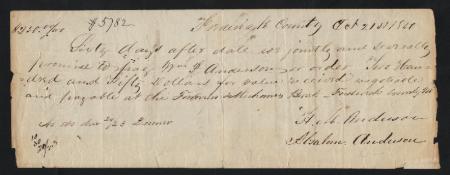 $250.00/100 $5782 Frederick County Oct 21st 1840
Sixty days after date we jointly and severally
promise to pay Wm J Anderson or order Two Hun-
dred and Fifty Dollars for value received negotiable
and payable at the Farmers & Mechanics Bank - Frederick County
Anderson
Absalom Anderson